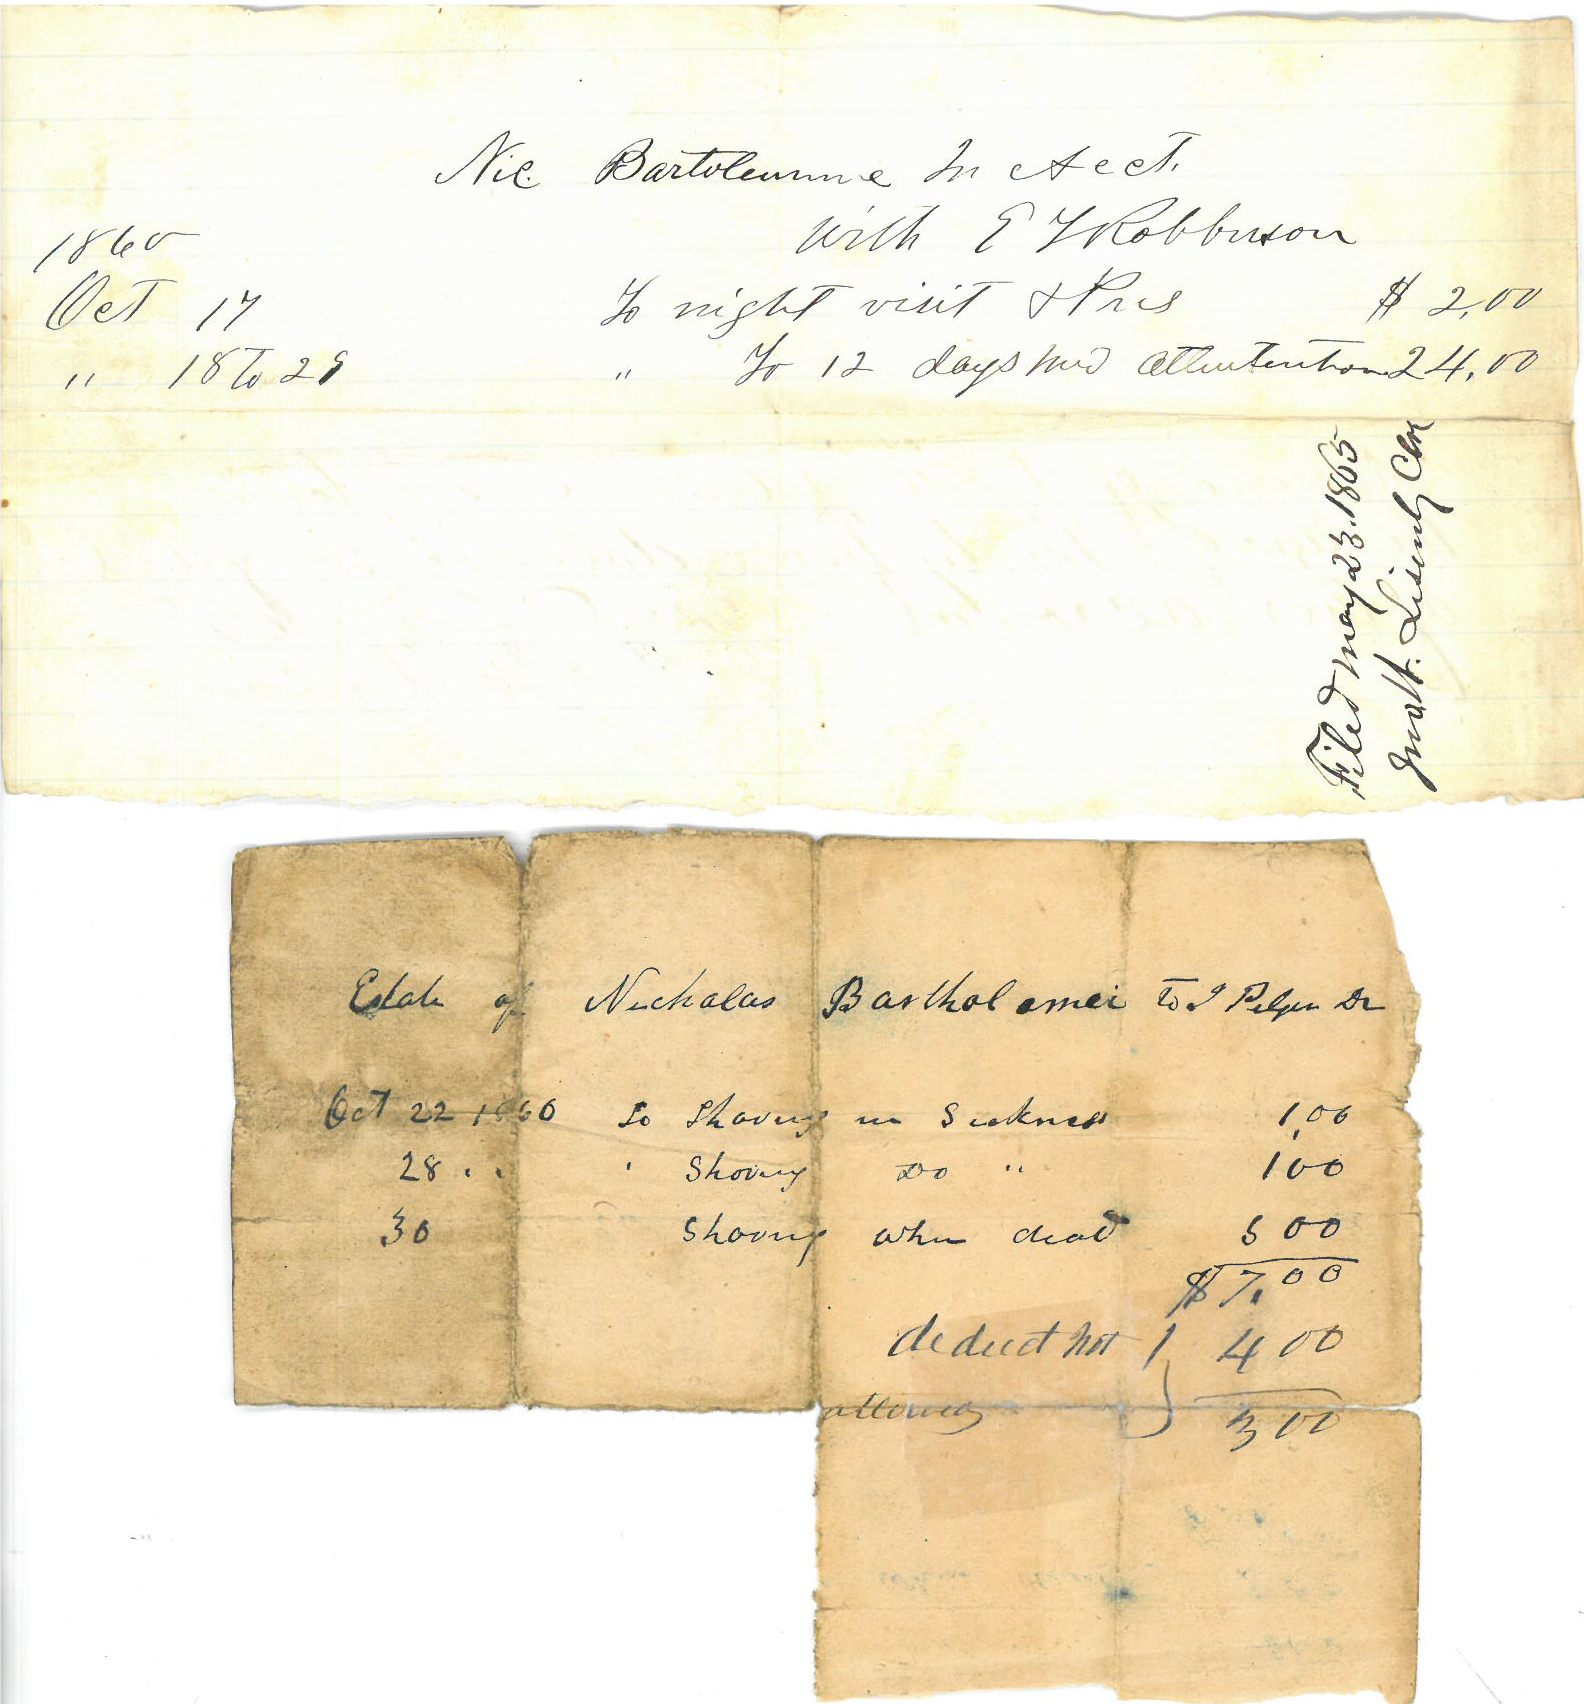 Nic. Bartolemme In Acct.
with E Y Robbinson
1860
Oct 17 To night visit & Pres $ 2,00
" 18 To 29 " To 12 days med attentention 24,00
Filed May 23. 1865
Matt. Lisenby Clk
Estate of Nickalas Barthol omei to J Pelgen Dr
Oct 22 1860 To Shaving in Sickness 1,00
28 " " ' Shaving Do " 100
30 Shaving when dead 500
$7,00
deduct not } 4 00
allowed 3 00